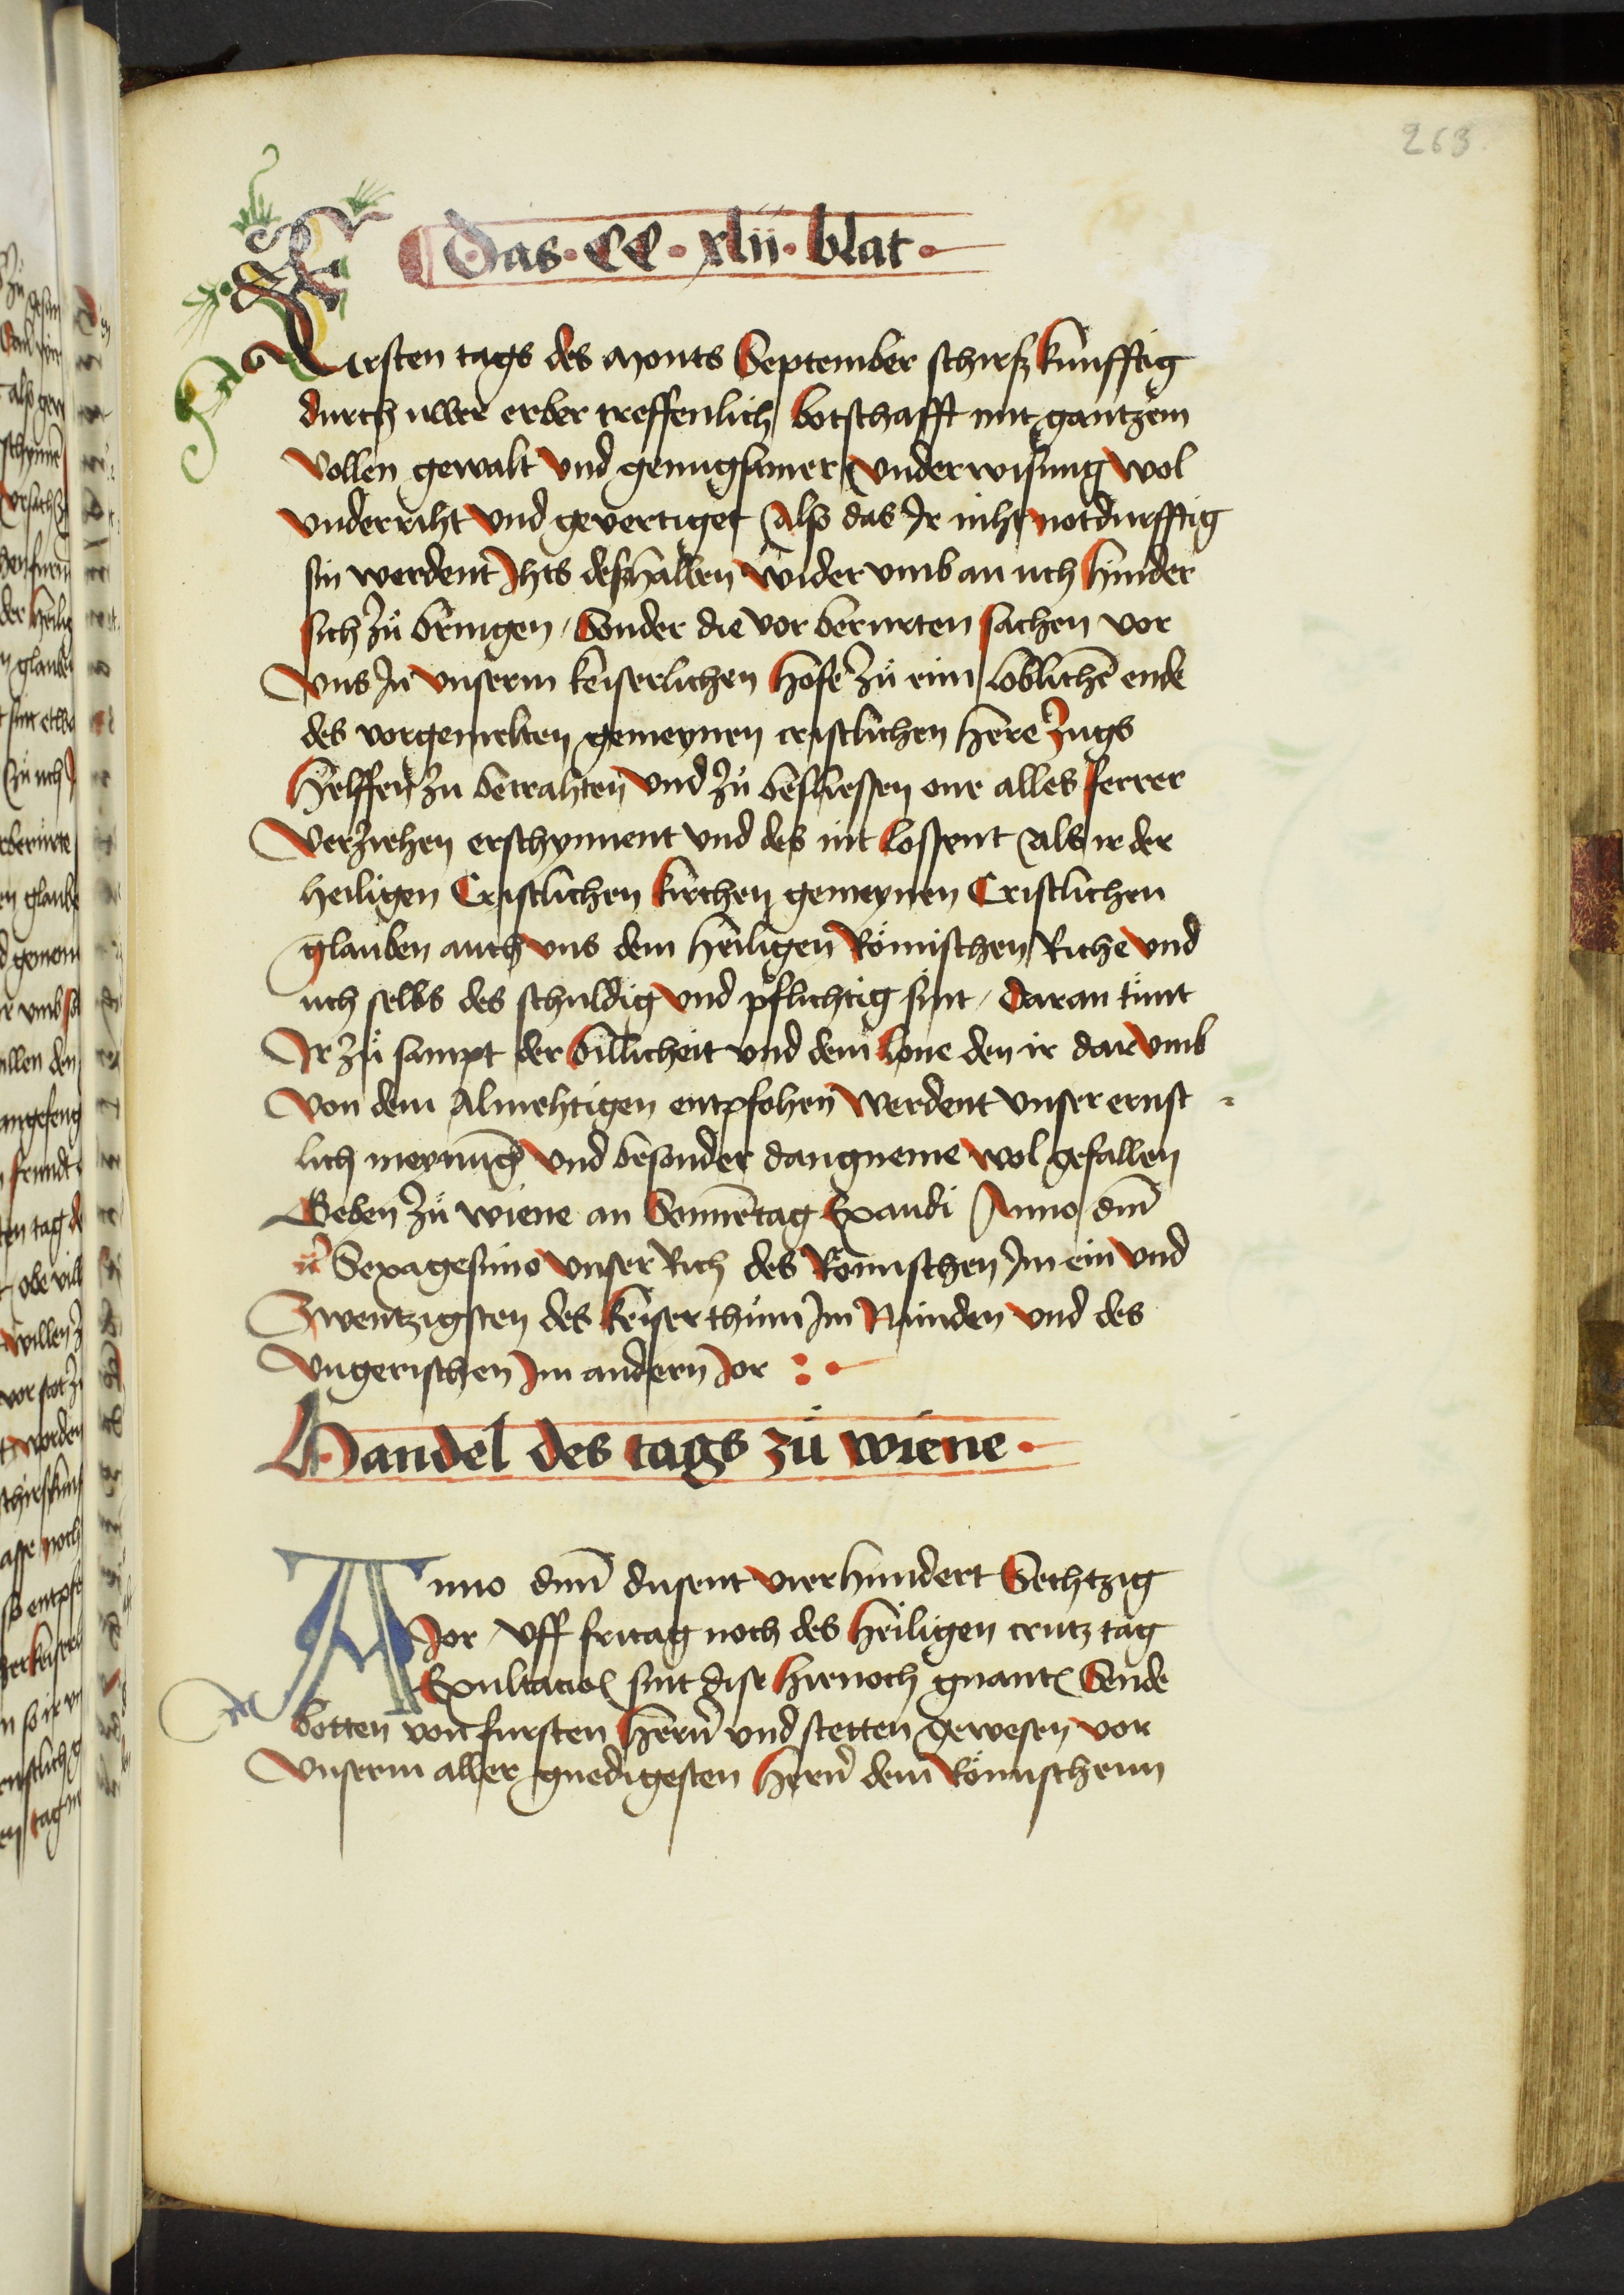 263.
Das · CC · xlii · blat ·
Ersten tags des Monts September schirst kunfftig
durch uwer erber treffenlich botschafft mit gantzem
vollen gewalt vnd genugsamer vnderwisung wol
vnderriht vnd gevertiget Also das Ir niht notdurfftig
sin werdent Ihts deszhalben wider vmb an uch hinder
sich zů bringen / Sonder die vor berurten sachen vor
vns In vnserm keiserlichen hofe zů eim loblichē ende
des vorgemelten gemeynen cristlichen here zugs
helffen zu betrahten vnd zů besliessen one alles ferrer
verziehen erschynnent vnd des nit lossent Als ir der
heiligen Cristlichen kirchen gemeynen Cristlichen
glauben auch vns dem heiligen Römischen Riche vnd
uch selbs des schuldig vnd pflichtig sint / Daran tůnt
Ir zů sampt der billicheit vnd dem lone den ir dar vmb
von dem Almehtigen entpfohen werdent vnser ernst
lich meynūg vnd besonder dangneme wol gefallen
Geben zů wiene an Sonnētag Exaudi Anno dnī
rc̄ Sexagesimo vnser Rich des Römischen Im ein vnd
Zwentzigsten des keiserthům Im Nünden vnd des
vngerischen Im andern Jor :·
Handel des tags zů wiene ·
Anno dnī dusent vierhundert Sechtzig
Jor / vff fritag noch des heiligen crutz tag
Exultacio sint dise hienoch gnante Sende
botten von fursten hern̄ vnd stetten gewesen vor
vnserm aller gnedigesten hern̄ dem Römischenn